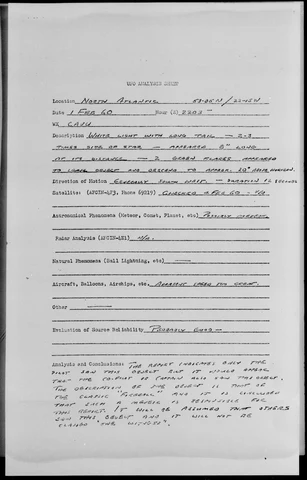 UFO ANALYSIS SHEET
Location North Atlantic 53-05N/22-15W
Date 1 Feb 60 Hour (Z) 2203
WX CAVU
Description White light with long tail - 2-3
times size of star - appeared 8" long
at its distance - 2 green flares appeared
to leave object and descend to approx. 10° above horizon
Direction of Motion Generally South West - Duration 12 seconds
Satellite: (AFCIN-4E3, Phone 69219) Checked 2 Feb 60 - N/A
Astronomical Phenomena (Meteor, Comet, Planet, etc) Possibly
Radar Analysis (AFCIN-4E1) N/A
Natural Phenomena (Ball Lightning, etc)
Aircraft, Balloons, Airships, etc. Apparent speed too great.
Other
Evaluation of Source Reliability Probably Good -
Analysis and Conclusions: The report indicates only the
pilot saw this object but it would appear
that the co-pilot or captain also saw this object.
The description of the object is that of
the classic "Fireball" and it is concluded
that such a meteor is responsible for
this report. It will be assumed that others
saw this object and it will not be
classed "one witness".